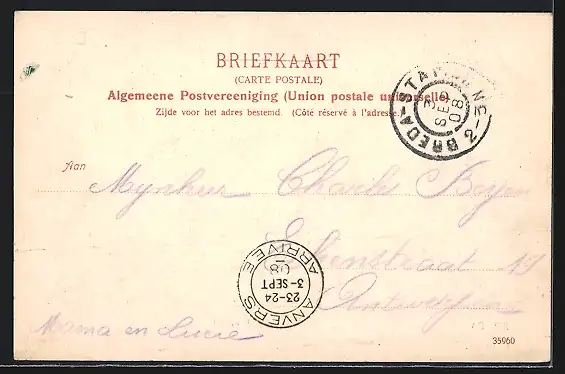 BRIEFKAART
(CARTE POSTALE)
Algemeene Postvereeniging (Union postale universelle)
Zijde voor het adres bestemd. (Côté réservé à l'adresse.)
BREDA-STATION
2-3N
3 SEP 08
Aan
Mynheer Charles
straat 19
Antwerpen
ANVERS ARRIVÉE
23-24
3-SEPT
08
Mama en Lucie
35960